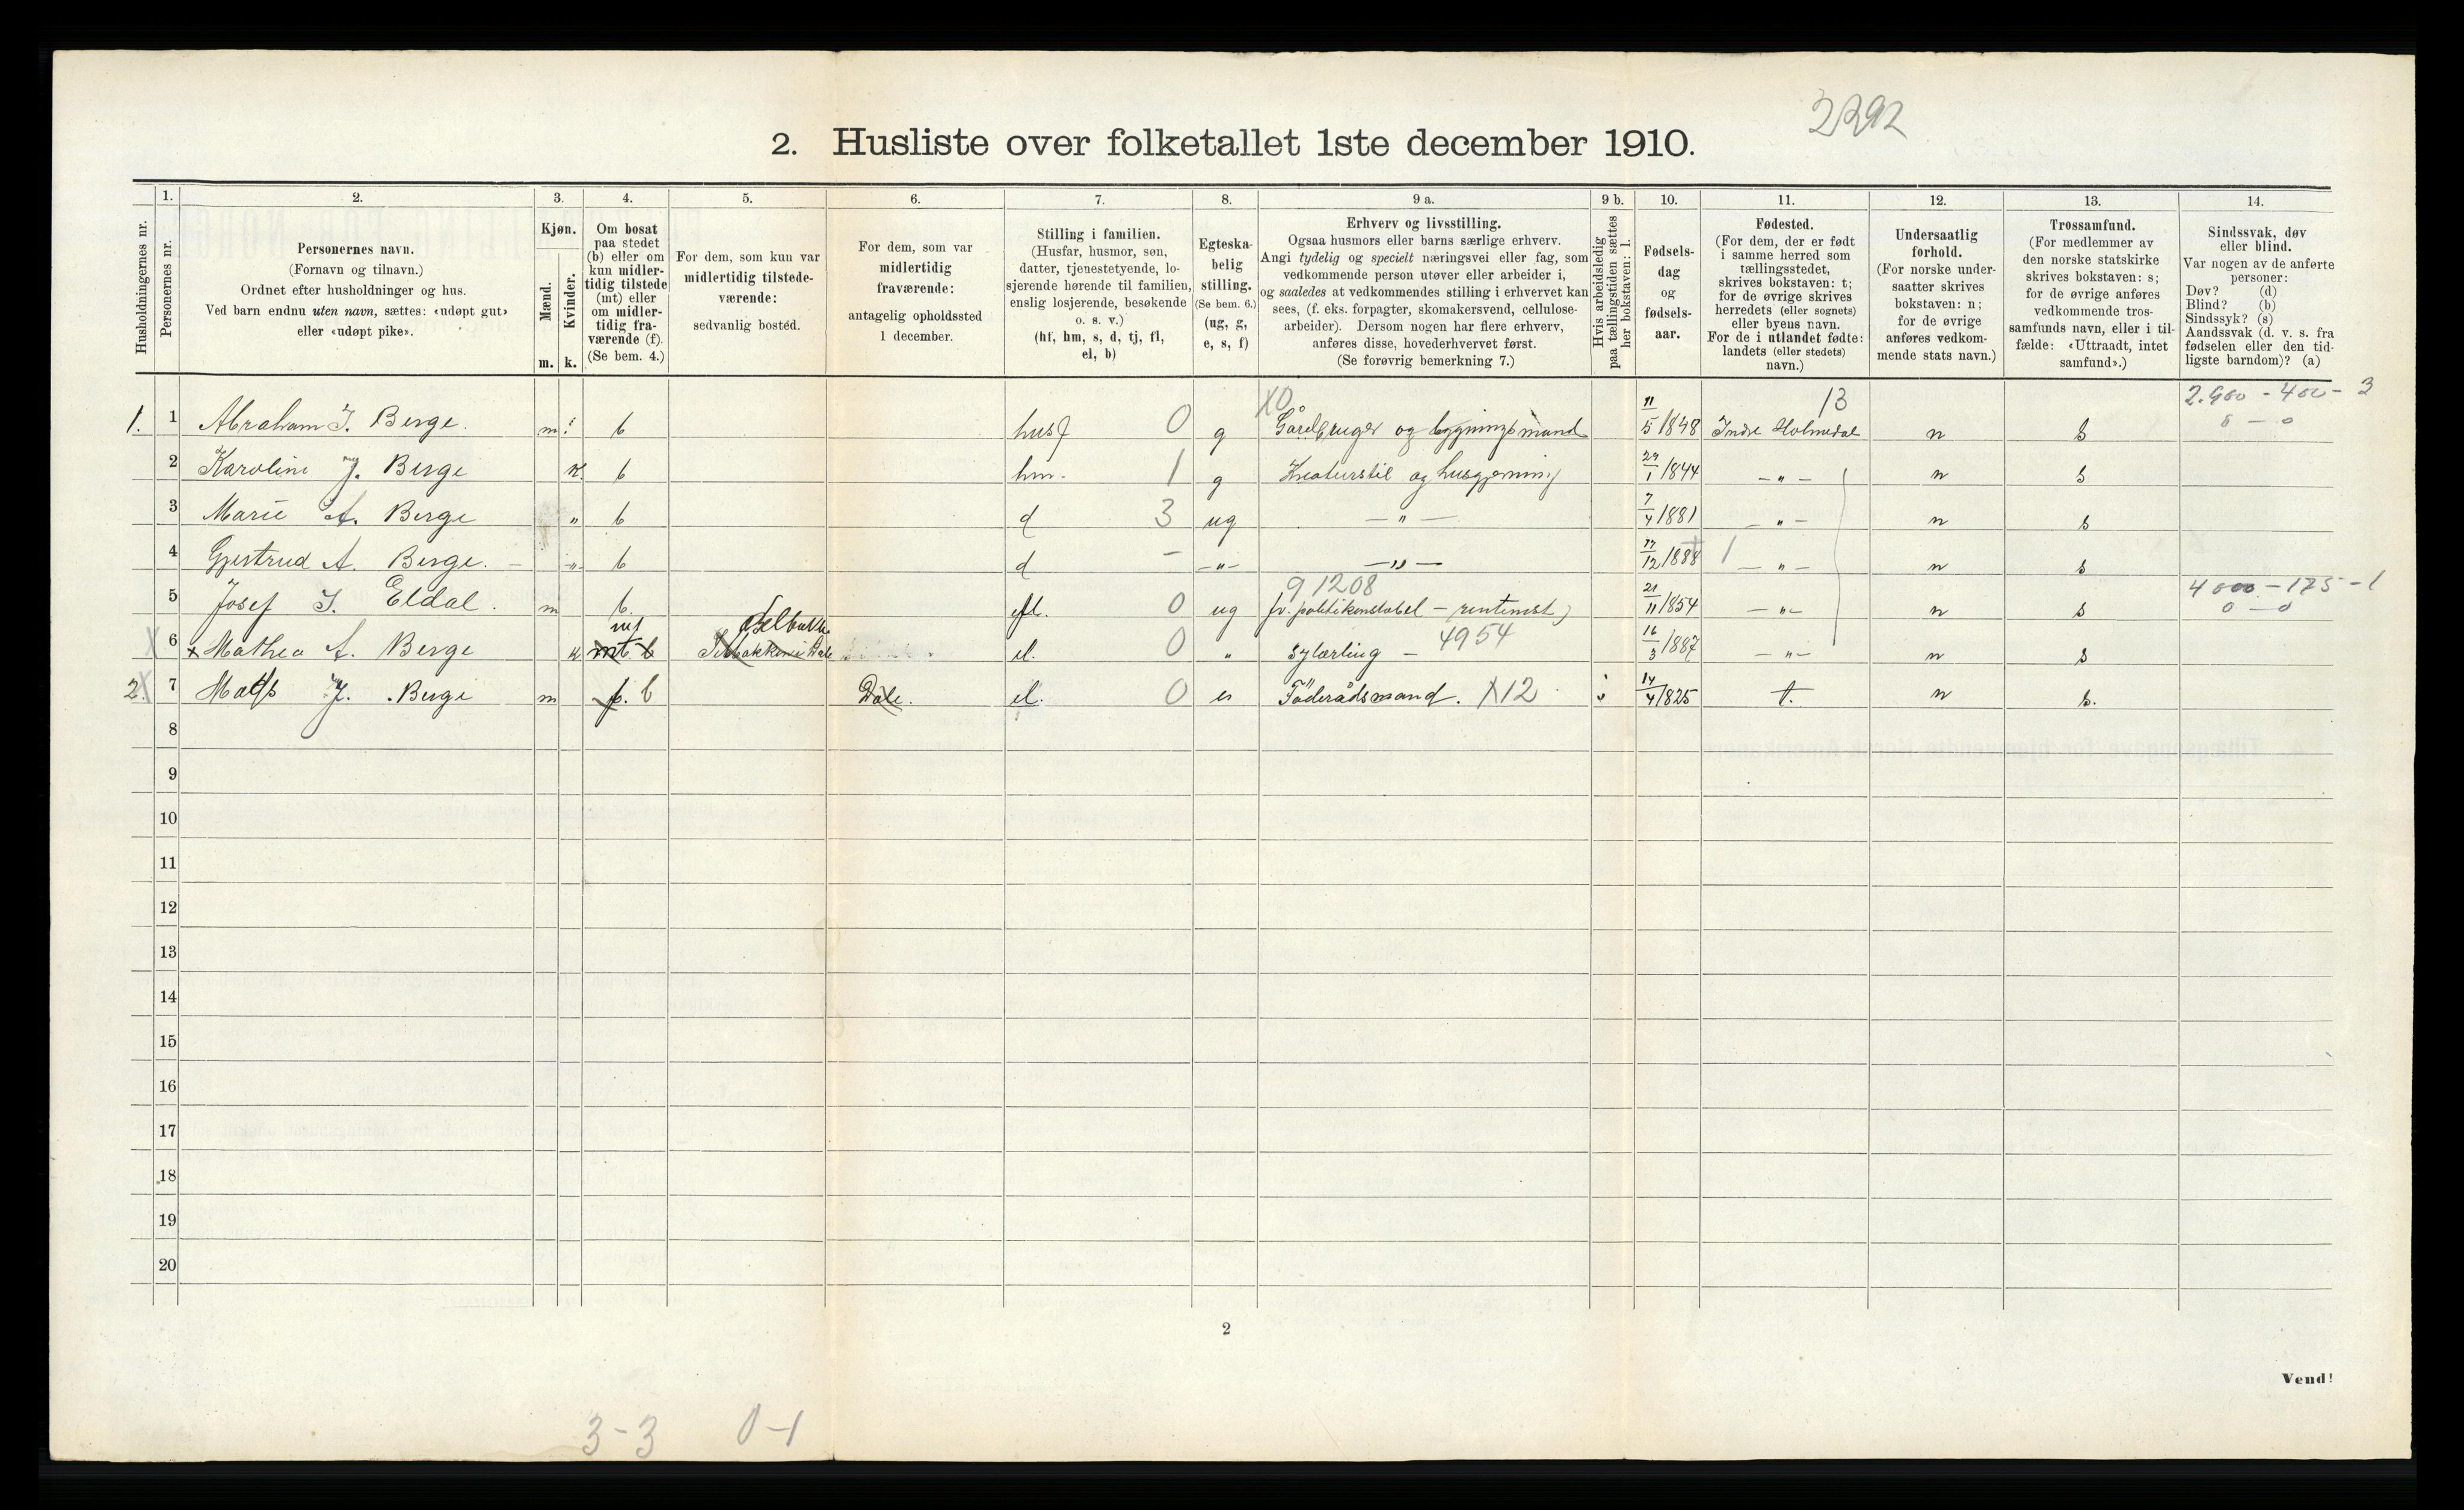 2292
2. Husliste over folketallet 1ste december 1910.
Husholdningernes nr.
1.
Personernes nr.
2.
Personernes navn.
(Fornavn og tilnavn.)
Ordnet efter husholdninger og hus.
Ved barn endnu uten navn, sættes: «udøpt gut»
eller «udøpt pike».
3.
Kjøn.
Mænd.
Kvinder.
m. k.
4.
Om bosat
paa stedet
(b) eller om
kun midler-
tidig tilstede
(mt) eller
om midler-
tidig fra-
værende (f).
(Se bem. 4.)
5.
For dem, som kun var
midlertidig tilstede-
værende:
sedvanlig bosted.
6.
For dem, som var
midlertidig
fraværende:
antagelig opholdssted
1 december.
7.
Stilling i familien.
(Husfar, husmor, søn,
datter, tjenestetyende, lo-
sjerende hørende til familien,
enslig losjerende, besøkende
o. s. v.)
(hf, hm, s, d, tj, fl,
el, b)
8.
Egteska-
belig
stilling.
(Se bem. 6.)
(ug, g,
e, s, f)
9 a.
Erhverv og livsstilling.
Ogsaa husmors eller barns særlige erhverv.
Angi tydelig og specielt næringsvei eller fag, som
vedkommende person utøver eller arbeider i,
og saaledes at vedkommendes stilling i erhvervet kan
sees, (f. eks. forpagter, skomakersvend, cellulose-
arbeider). Dersom nogen har flere erhverv,
anføres disse, hovederhvervet først.
(Se forøvrig bemerkning 7.)
9 b.
Hvis arbeidsledig
paa tællingstiden sættes
her bokstaven: l.
10.
Fødsels-
dag
og
fødsels-
aar.
11.
Fødested.
(For dem, der er født
i samme herred som
tællingsstedet,
skrives bokstaven: t;
for de øvrige skrives
herredets (eller sognets)
eller byens navn.
For de i utlandet fødte:
landets (eller stedets)
navn.)
12.
Undersaatlig
forhold.
(For norske under-
saatter skrives
bokstaven: n;
for de øvrige
anføres vedkom-
mende stats navn.)
13.
Trossamfund.
(For medlemmer av
den norske statskirke
skrives bokstaven: s;
for de øvrige anføres
vedkommende tros-
samfunds navn, eller i til-
fælde: «Uttraadt, intet
samfund».)
14.
Sindssvak, døv
eller blind.
Var nogen av de anførte
personer:
Døv? (d)
Blind? (b)
Sindssyk? (s)
Aandssvak (d. v. s. fra
fødselen eller den tid-
ligste barndom)? (a)
X0 13 2.900 - 400 - 3
1. 1 Abraham I. Berge. m b husf 0 g Gårdbruger og bygningsmand 11/5 1848 Indre Holmedal n s 0 - 0
2 Karoline J. Berge k. b hm. 1 g Kreaturstel og husgjerning 29/1 1844 - " - n s
3 Marie A. Berge " b d 3 ug - " - 7/4 1881 - " - n s
4 Gjertrud A. Berge. - " - b d - - " - - " - 17/12 1888 1 - " - n s
91208 4000 - 175 - 1
5 Josef I. Eldal. m b. fl. 0 ug fv. politikonstabel - 21/11 1854 - " - n s 0 - 0
X 6 x Mathea A. Berge k mt b el. 0 " sylærling - 4954 16/3 1887 - " - n s
2. X 7 Mads J. Berge m f. b Dale. el. 0 e Føderådsmand. X12 14/4 1825 t. n s.
8
9
10
11
12
13
14
15
16
17
18
19
20
2
Vend!
3-3 0-1